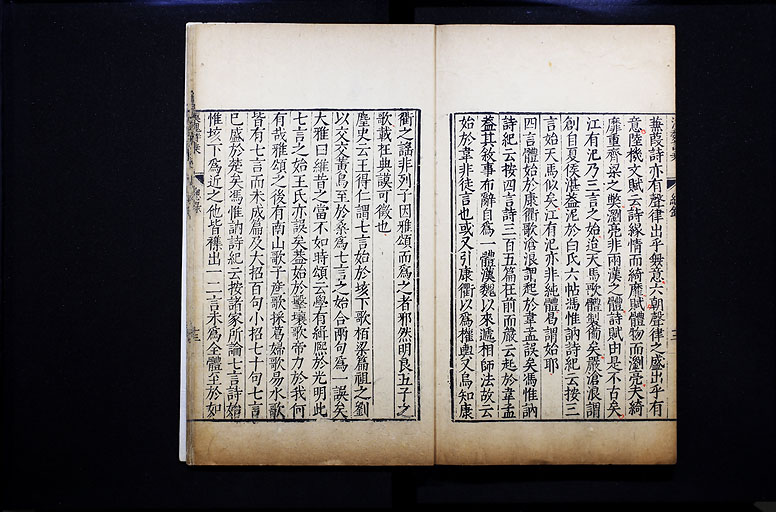 蒹葭詩亦有聲律出乎無意六朝聲律之盛出乎有
意陸機文賦云詩緣情而綺靡賦體物而瀏亮夫綺
靡重齊梁之獘瀏亮非兩漢之體詩賦由是不古矣
江有汜乃三言之始迨天馬歌體製備矣嚴滄浪謂
創自夏侯湛蓋泥於白氏六帖馮惟訥詩紀云接三
言始天馬似矣江有汜亦非純體曷謂始耶
四言體始於康衢歌滄浪謂起於韋孟誤矣馮惟訥
詩紀云按四言詩三百五篇在前而嚴云起於韋孟
蓋其敘事布辭自為一體漢魏以來遞相師法故云
始於韋非徒言也或又引康衢以為權輿又烏知康
衢之謠非列子因雅頌而為之者邪然明良五子之
歌載在典謨可徵也
麈史云王得仁謂七言始於垓下歌栢梁篇祖之劉
以交交黃鳥至於桑為七言之始合兩句為一誤矣
大雅曰維昔之富不如時頌云學有緝熙於光明此
七言之始王氏亦誤矣蓋始於擊壤歌帝力於我何
有哉雅頌之後有南山歌子產歌採葛婦歌易水歌
皆有七言而未成篇及大招百句小招七十句七言
已盛於楚矣馮惟訥詩紀云按諸家所論七言詩始
惟垓下為近之他皆襍出一二言未為全體至於如